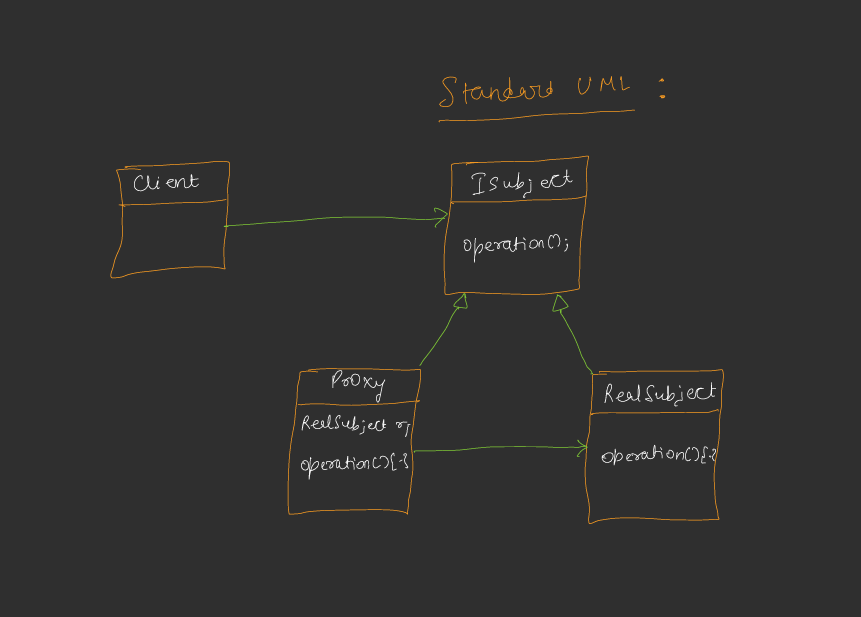 Standard UML :
Client
ISubject
operation();
Proxy
RealSubject r;
operation(){-}
RealSubject
operation(){-}